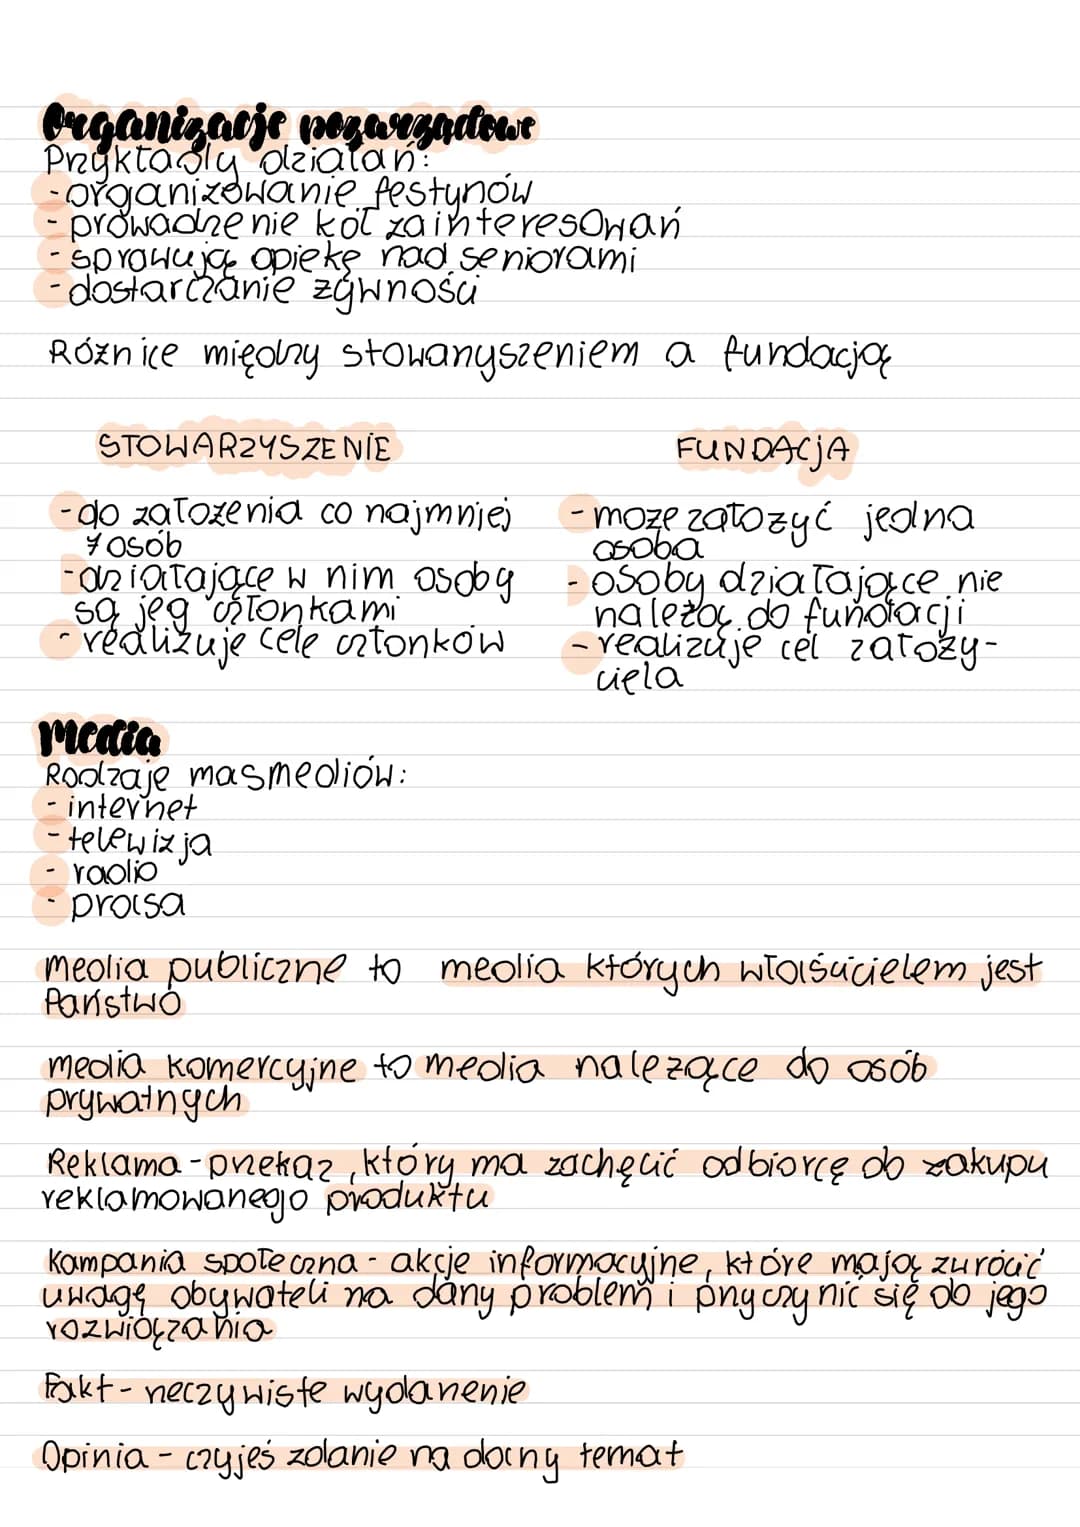 Organizacje pozarządowe
Przykłady działań:
-organizowanie festynów
-prowadzenie kół zainteresowań
-sprawują opiekę nad seniorami
-dostarczanie żywności
Różnice między stowarzyszeniem a fundacją
STOWARZYSZENIE
-do założenia co najmniej
7 osób
-działające w nim osoby
są jeg członkami
-realizuje cele członków
FUNDACJA
-może założyć jedna
osoba
-osoby działające nie
należą do fundacji
-realizuje cel założy-
ciela
Media
Rodzaje masmediów:
-internet
-telewizja
-radio
-prasa
media publiczne to media których właścicielem jest
Państwo
media komercyjne to media należące do osób
prywatnych
Reklama -przekaz, który ma zachęcić odbiorcę do zakupu
reklamowanego produktu
Kampania społeczna - akcje informacyjne, które mają zwrócić
uwagę obywateli na dany problem i przyczynić się do jego
rozwiązania
Fakt- rzeczywiste wydarzenie
Opinia - czyjeś zdanie na dany temat